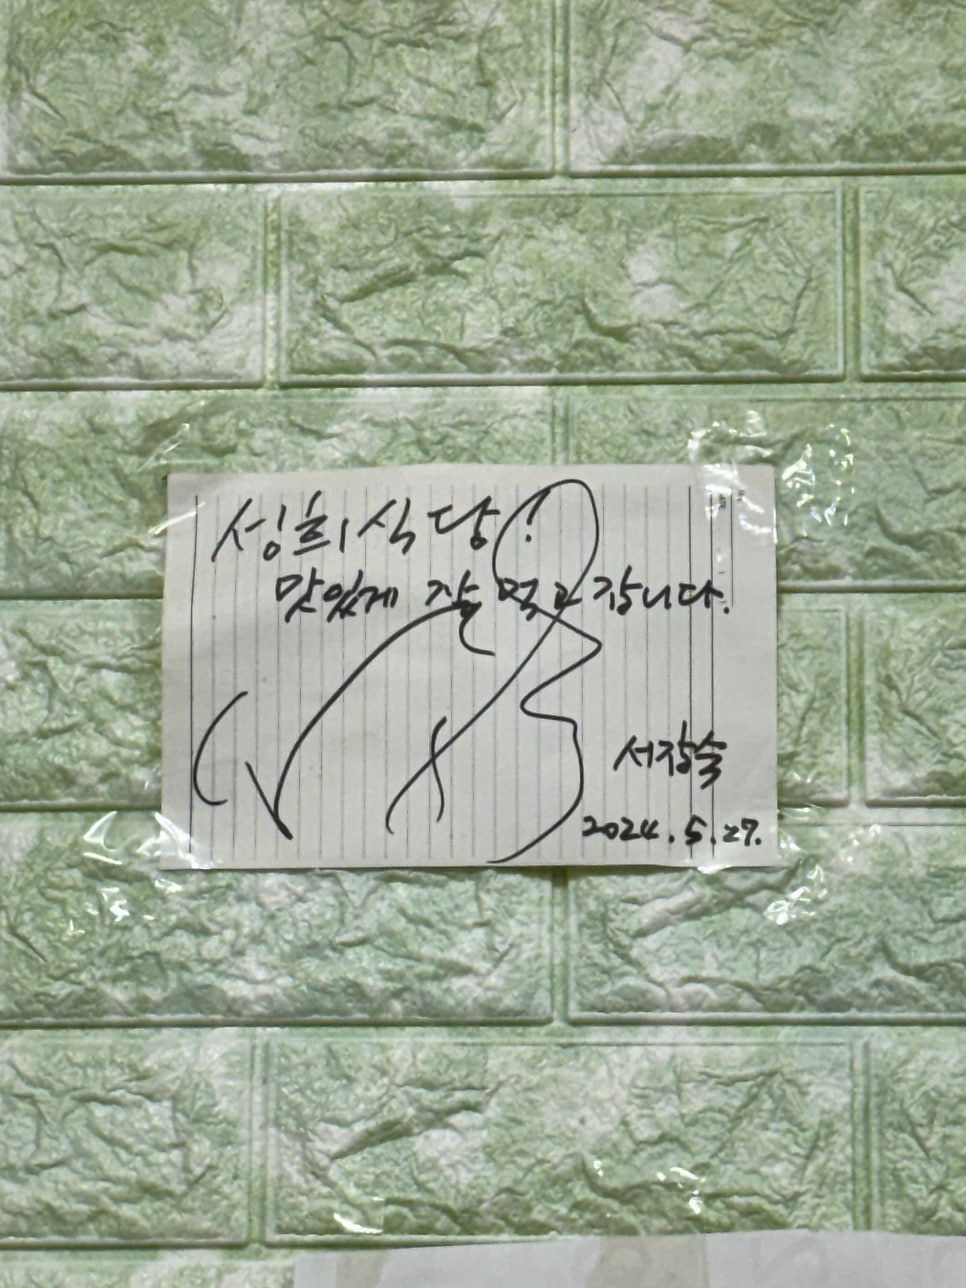 성희식당!
맛있게 잘 먹고 갑니다.
서장숙
2024.5.27.